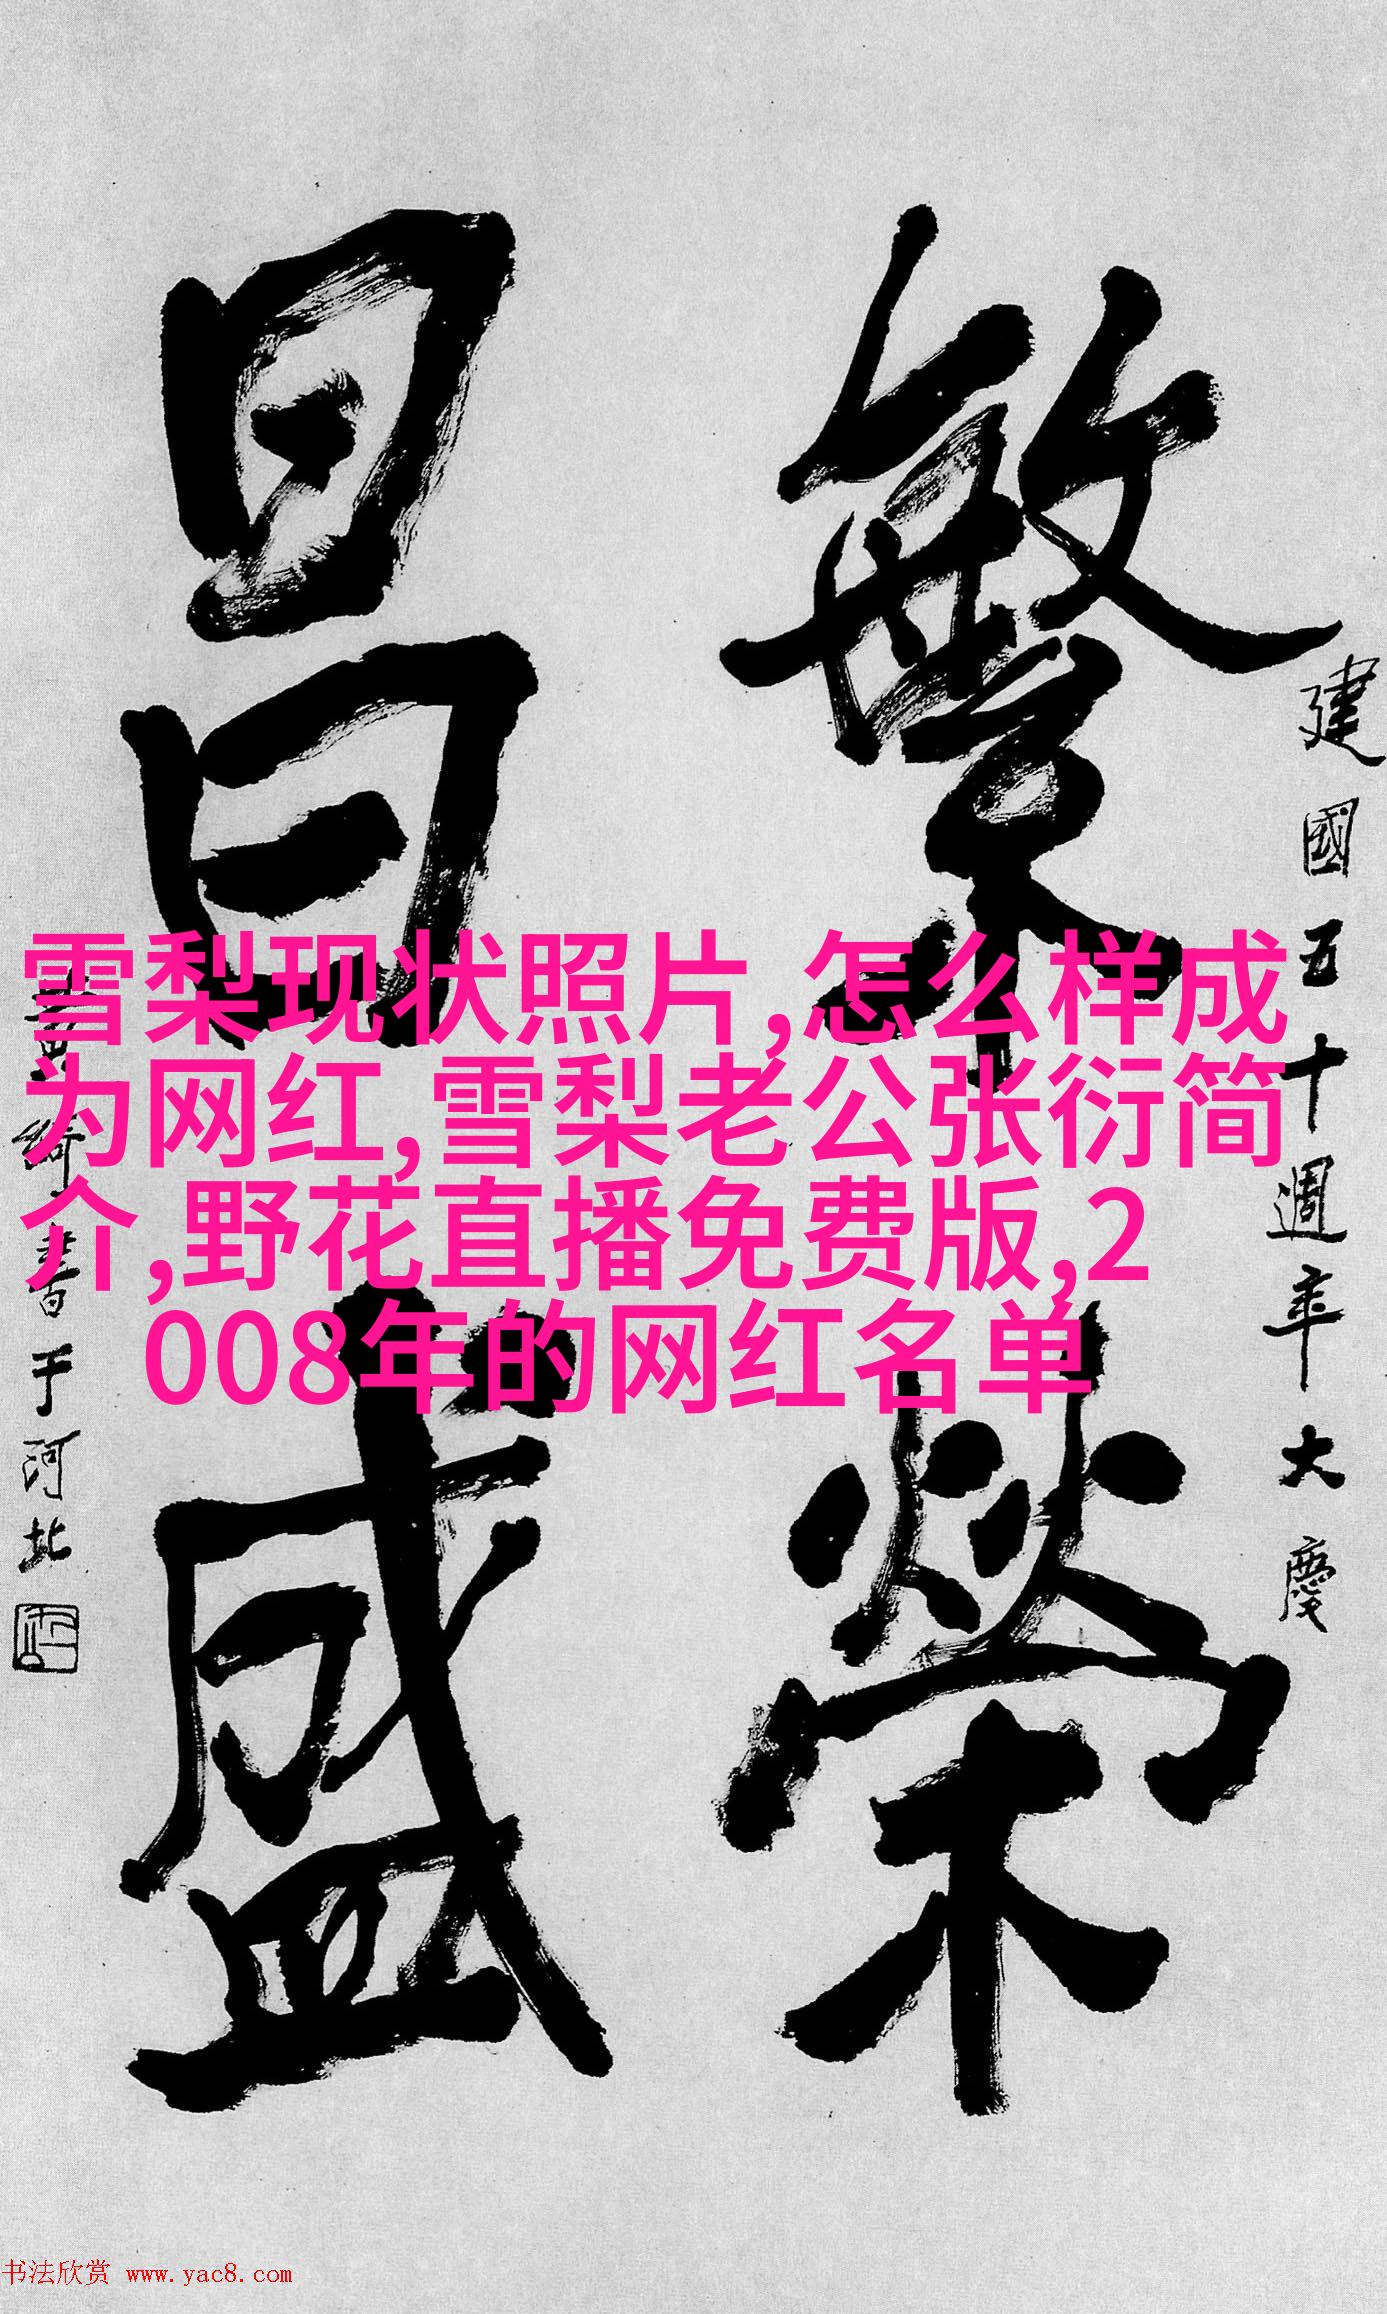 繁榮
昌盛
建國五十週年大慶
書于河北
雪梨现状照片,怎么样成
为网红,雪梨老公张衍简
介,野花直播免费版,2
008年的网红名单
书法欣赏 www.yac8.com